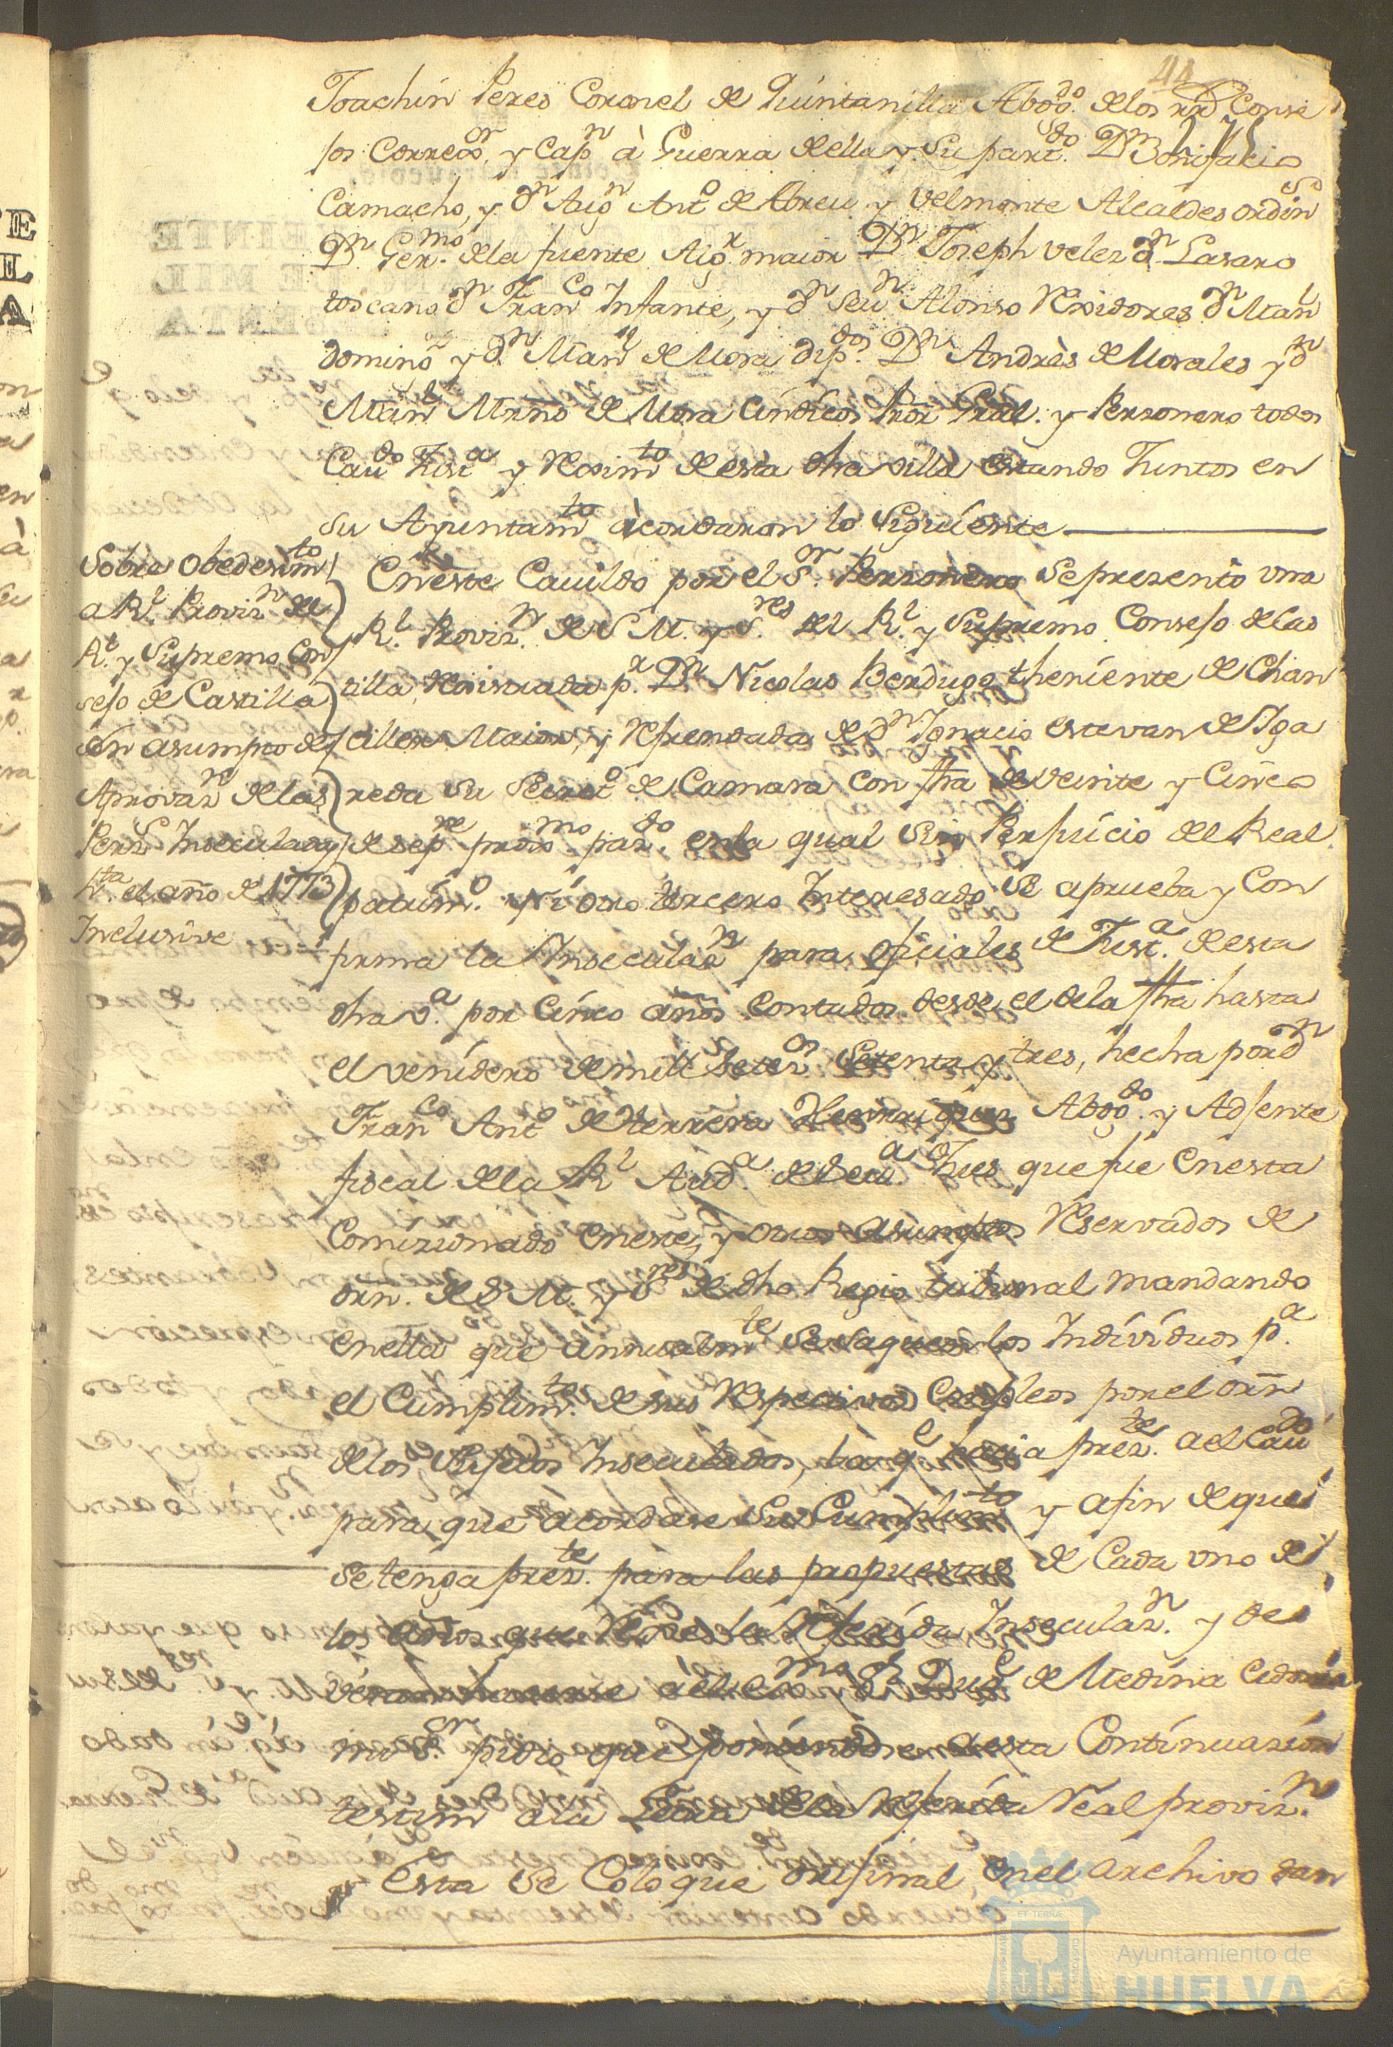 44
175
Joachin Peres Coronel de Quintanilla Abogdo. de los rrs. Conse
jos Corregor. y Capn. à Guerra de ella y su partdo. Dn. Bonifacio
Camacho, y Dn. Aign. Anto. de Abreu y Velmonte Alcaldes ordins.
Dn. Germo. de la fuente Aigr. maior Dn. Joseph Velez dn. Lasaro
toscano dn. Franco. Infante, y dn. Seun. Alonso Rexidores dn. Manl.
domino. y dn. Manl. de Mora dipdos. Dn. Andrès de Morales y dn.
Manl. Mrno. de Mora Cindicos Pror. Gral. y Personero todos
Caudo. Justa. y Reximto. de esta dha villa estando Juntos en
su Ayuntamto. àcordaron lo siguiente
Sobre obedesimto.
a Rl. Provizn. del
Rl. y Supremo Con
sejo de Castilla
en asumpto de
Aprovazn. de las
Pers. Inseculadas
hta. el año de 1773
Inclusive
En este Cavildo por el Sor. Personero se presentò una
Rl. Provizn. de S. M. y Sres. del Rl. y Supremo Consejo de Cas
tilla, rexistrada pr. Dn. Nicolas Berdugo theniente de Chan
ciller Maior, y Refrendada de dn. Ygnacio estevan de Higa
reda su Secreto. de Camara con fha de veinte y Cinco
de sepre. proxmo. pazdo. en la qual sin Perjuicio del Real
patrimo. ni otro tercero Interesado se aprueba y Con
firma la Inseculazn. para oficiales de Justa. de esta
dha va. por Cinco años Contados desde el de la fha hasta
el venidero de mill setezos. setenta y tres, hecha por dn.
Franco. Anto. de Herrera Henrriquez Abogdo. y Ajente
fiscal de la Rl. Auda. de Seva. Jues que fue en esta
Comizionado en este, y otros asumptos Reservados de
orn. de S. M. y Sres. de dho Regio tribunal mandando
en ella que annualmte. se saquen los Individuos pa.
el Cumplimto. de sus Respectivos Empleos por el orn
de los Sujetos Inseculados, la qe. hacia prezte. a el Caudo.
para que acordase su Cumplimto. y a fin de que
se tenga prezte. para las propuestas de Cada uno de
los años que Rixe la Referida Inseculazn. y de
verse hacerse a el Exmo. Sr. Duqe. de Medina Cidonia
mi Sor. pidio que poniendose a esta Continuazion
testimo. a la Letra de la Referida Real provizn.
Esta se Coloque orijinal en el archivo dan
Ayuntamiento de
HUELVA